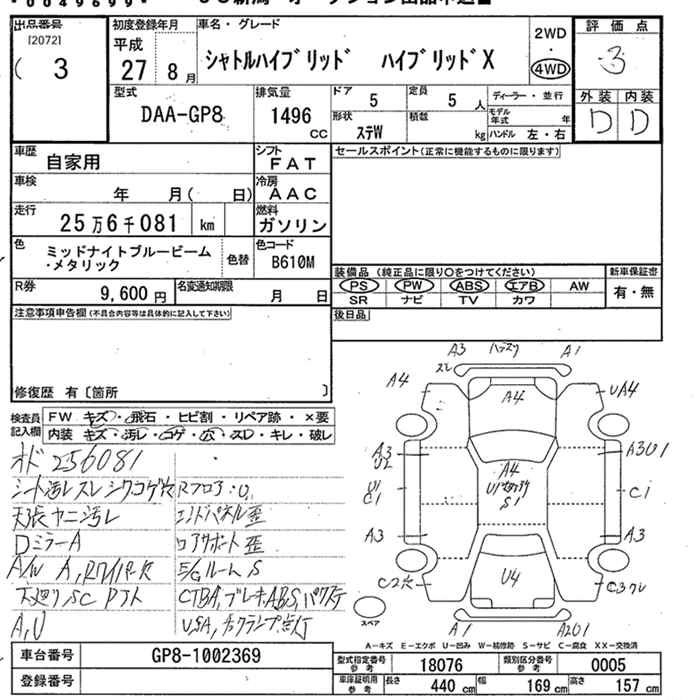 出品番号
[2072]
( 3
初度登録年月
平成
27 8 月
車名・グレード
シャトルハイブリッド ハイブリッドX
2WD
・
4WD
評価点
3
外装 内装
D D
型式
DAA-GP8
排気量
1496 CC
ドア 5
定員 5 人
ディーラー・並行
形状 ステW
積載 kg
モデル年式 年
ハンドル 左・右
車歴 自家用
シフト FAT
セールスポイント(正常に機能するものに限ります)
車検 年 月( 日)
冷房 AAC
走行 25万6千081 km
燃料 ガソリン
色 ミッドナイトブルービーム
・メタリック
色替
色コード B610M
R券 9,600 円
名変通知期限 月 日
装備品 (純正品に限り○をつけてください)
PS PW ABS エアB AW
SR ナビ TV カワ
新車保証書
有・無
注意事項申告欄(不具合内容等は具体的に記入して下さい)
後日品
修復歴 有〔箇所 〕
検査員記入欄
FW キズ・飛石・ヒビ割・リペア跡・×要
内装 キズ・汚レ・コゲ・穴・スレ・キレ・破レ
オド 256081
シート汚レ スレ シワ コゲ穴
天張ヤニ汚レ
DミラーA
A/W A,
下廻リSC
A,U
Rフロア・U,
エンドパネル歪
コアサポート歪
E/GルームS
A3
A1
A4
A4
UA4
A3
U2
A3U1
U1
C1
A4
S1
C1
A3
A3
C2穴
U4
A1
スペア
A−キズ E−エクボ U−凹み W−補修跡 S−サビ C−腐食 XX−交換済
車台番号 GP8-1002369
登録番号
型式指定番号 参考 18076
類別区分番号 参考 0005
車庫証明用 参考 長さ 440 cm 幅 169 cm 高さ 157 cm